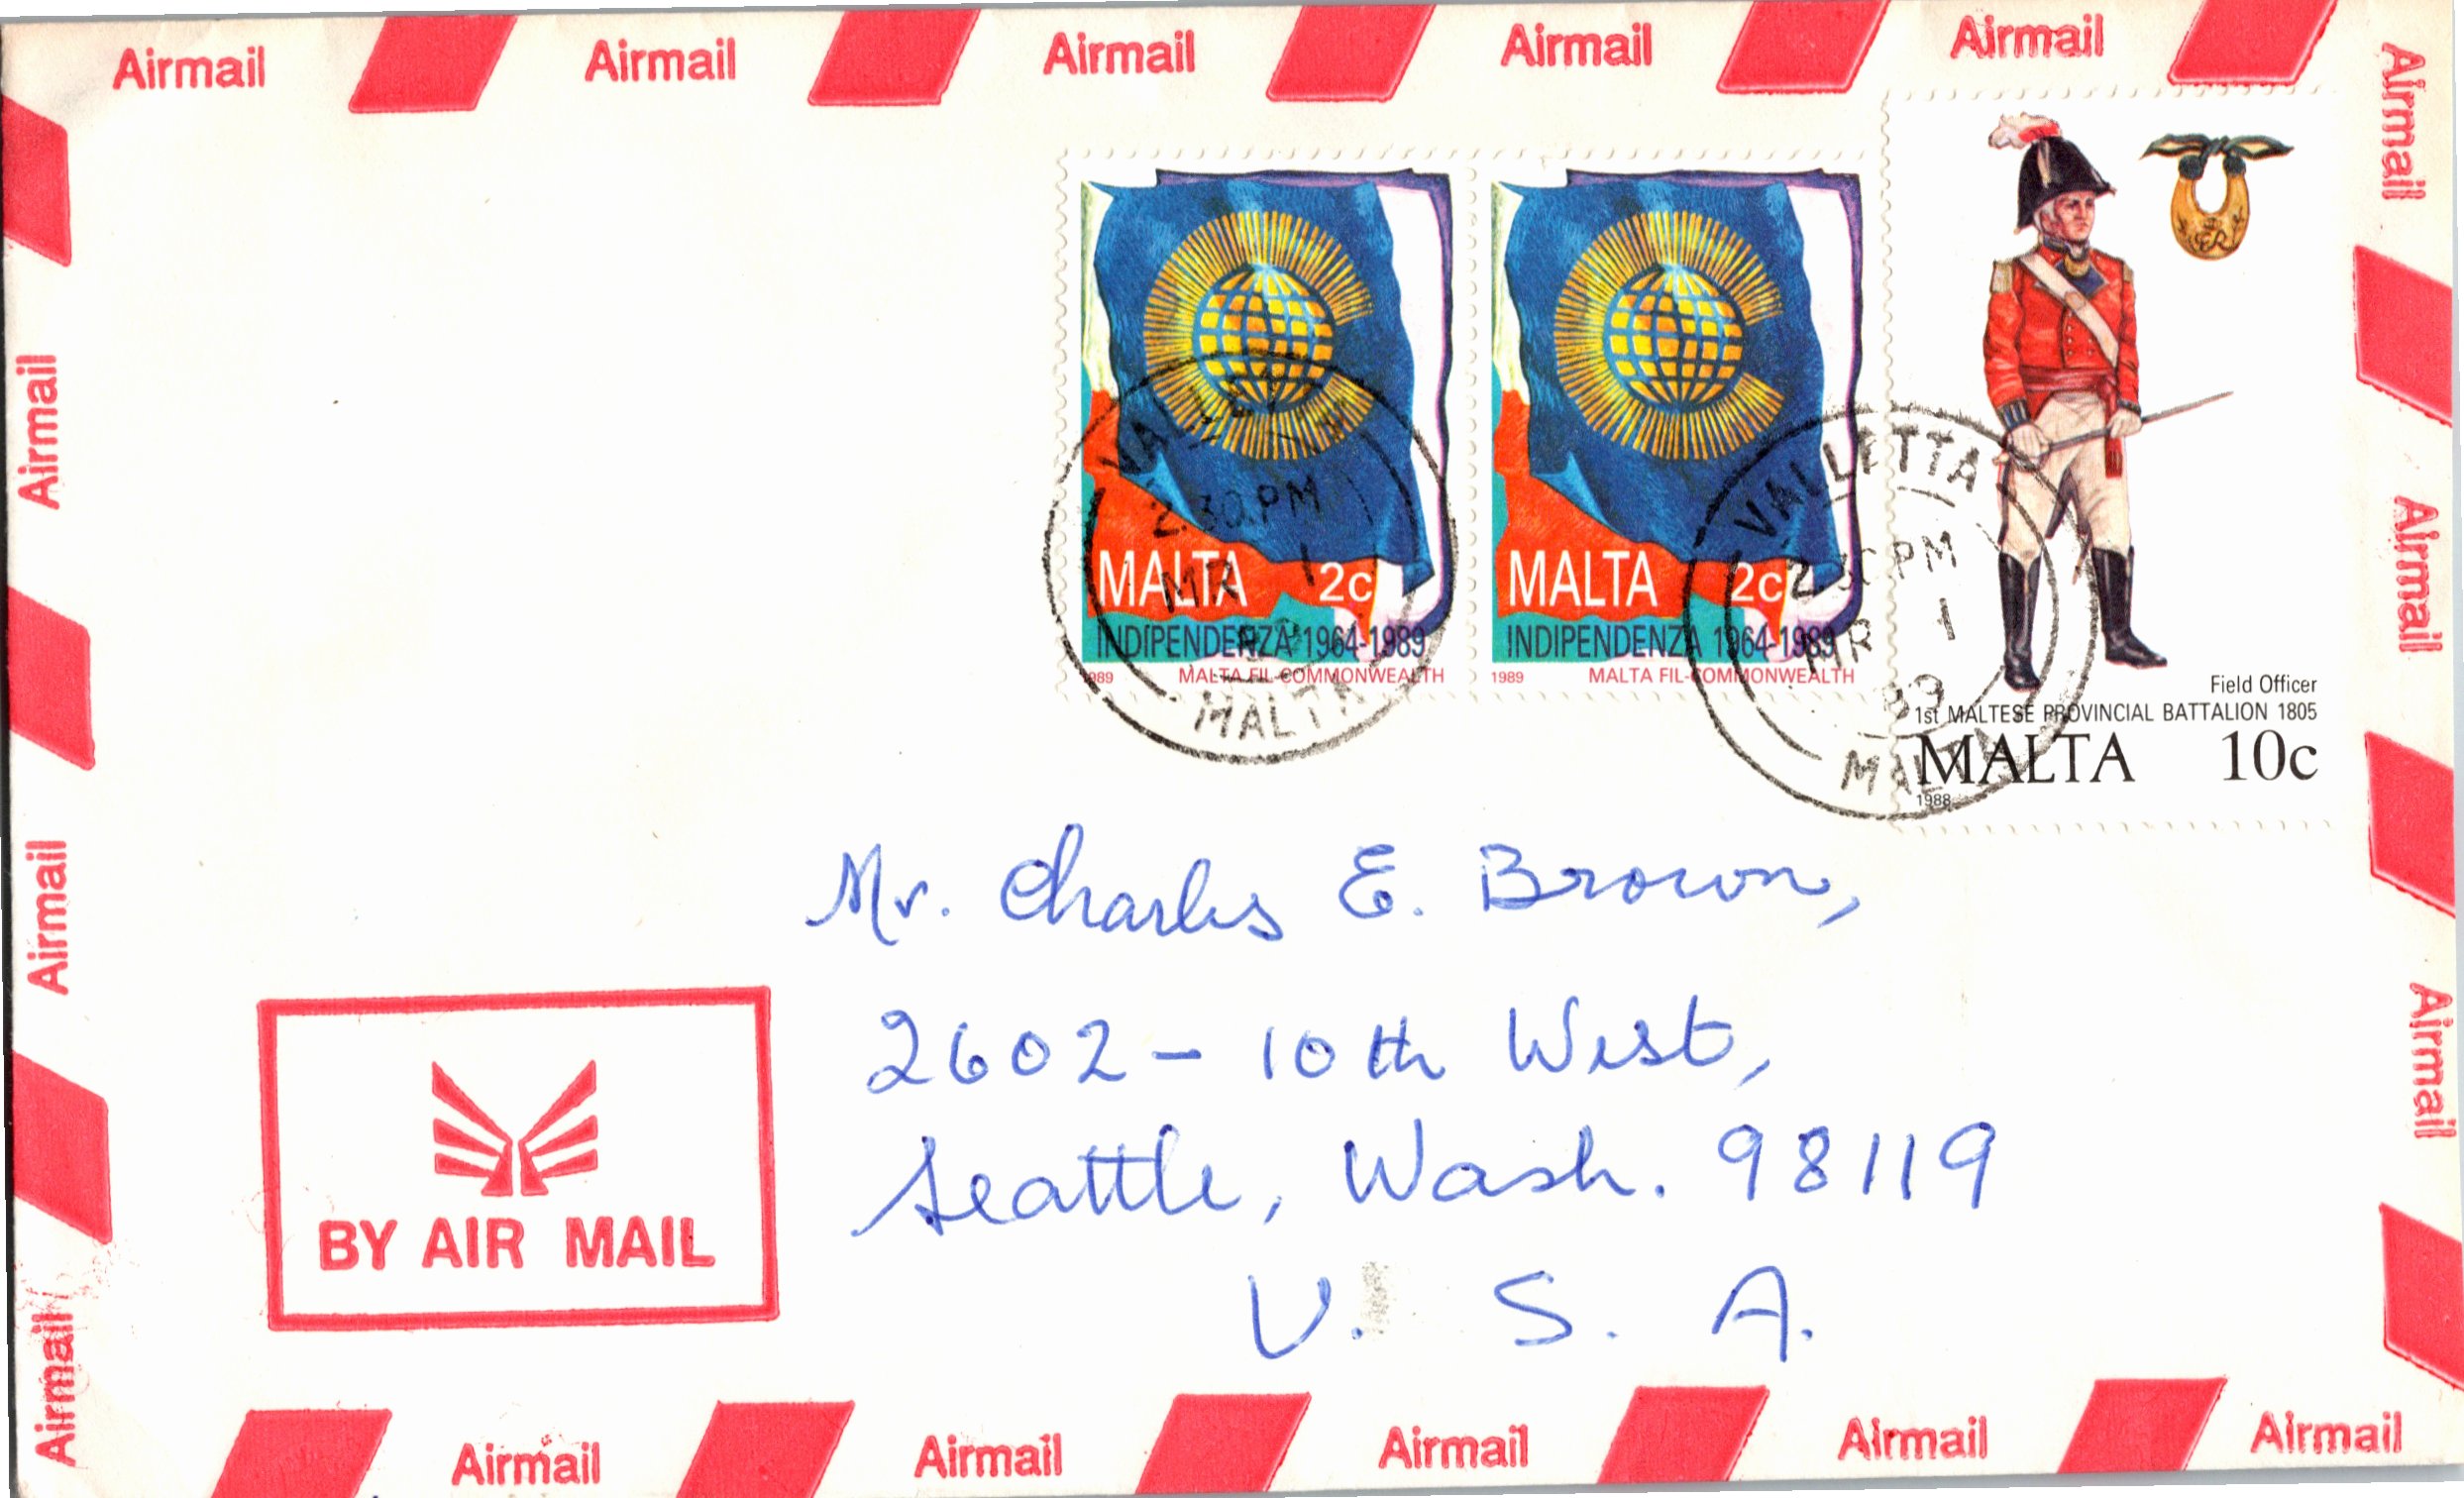 Airmail Airmail Airmail Airmail Airmail
Airmail
Airmail
Airmail
Airmail
Airmail
Airmail
Airmail
MALTA 2c
INDIPENDENZA 1964-1989
1989 MALTA FIL-COMMONWEALTH
MALTA 2c
INDIPENDENZA 1964-1989
1989 MALTA FIL-COMMONWEALTH
ER
Field Officer
1st MALTESE PROVINCIAL BATTALION 1805
MALTA 10c
1988
VALLETTA
2.30PM
MR 1
MALTA
VALLETTA
2.30PM
MR 1
89
MALTA
Mr. Charles E. Brown,
2602 - 10th West,
Seattle, Wash. 98119
U. S. A.
BY AIR MAIL
Airmail Airmail Airmail Airmail Airmail